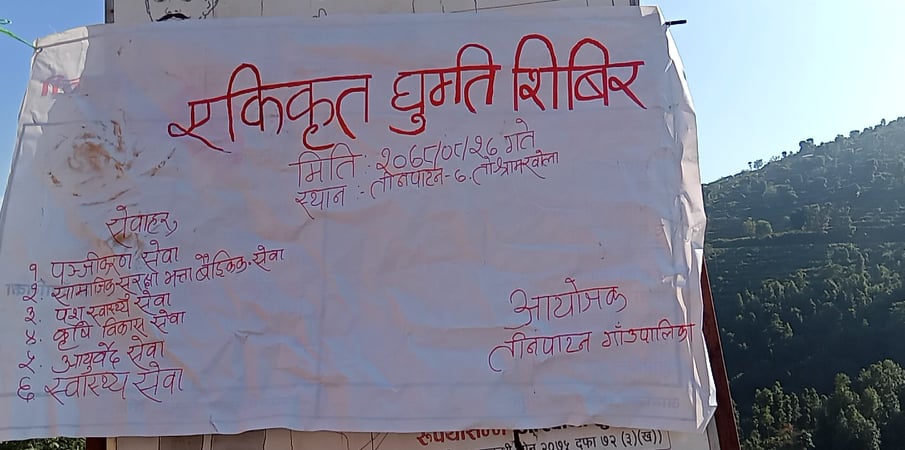 एकिकृत घुम्ति शिबिर
मिति : २०७८/०८/२८ गते
स्थान : तीनपाटन-७,
सेवाहरु
१. पञ्जीकरण सेवा
२. सामाजिक सुरक्षा भत्ता बैङ्किक सेवा
३. पशु स्वास्थ्य सेवा
४. कृषि विकास सेवा
५. आयुर्वेद सेवा
६. स्वास्थ्य सेवा
आयोजक
तीनपाटन गाँउपालिका
२०७५ दफा ७२ (३)(ख))